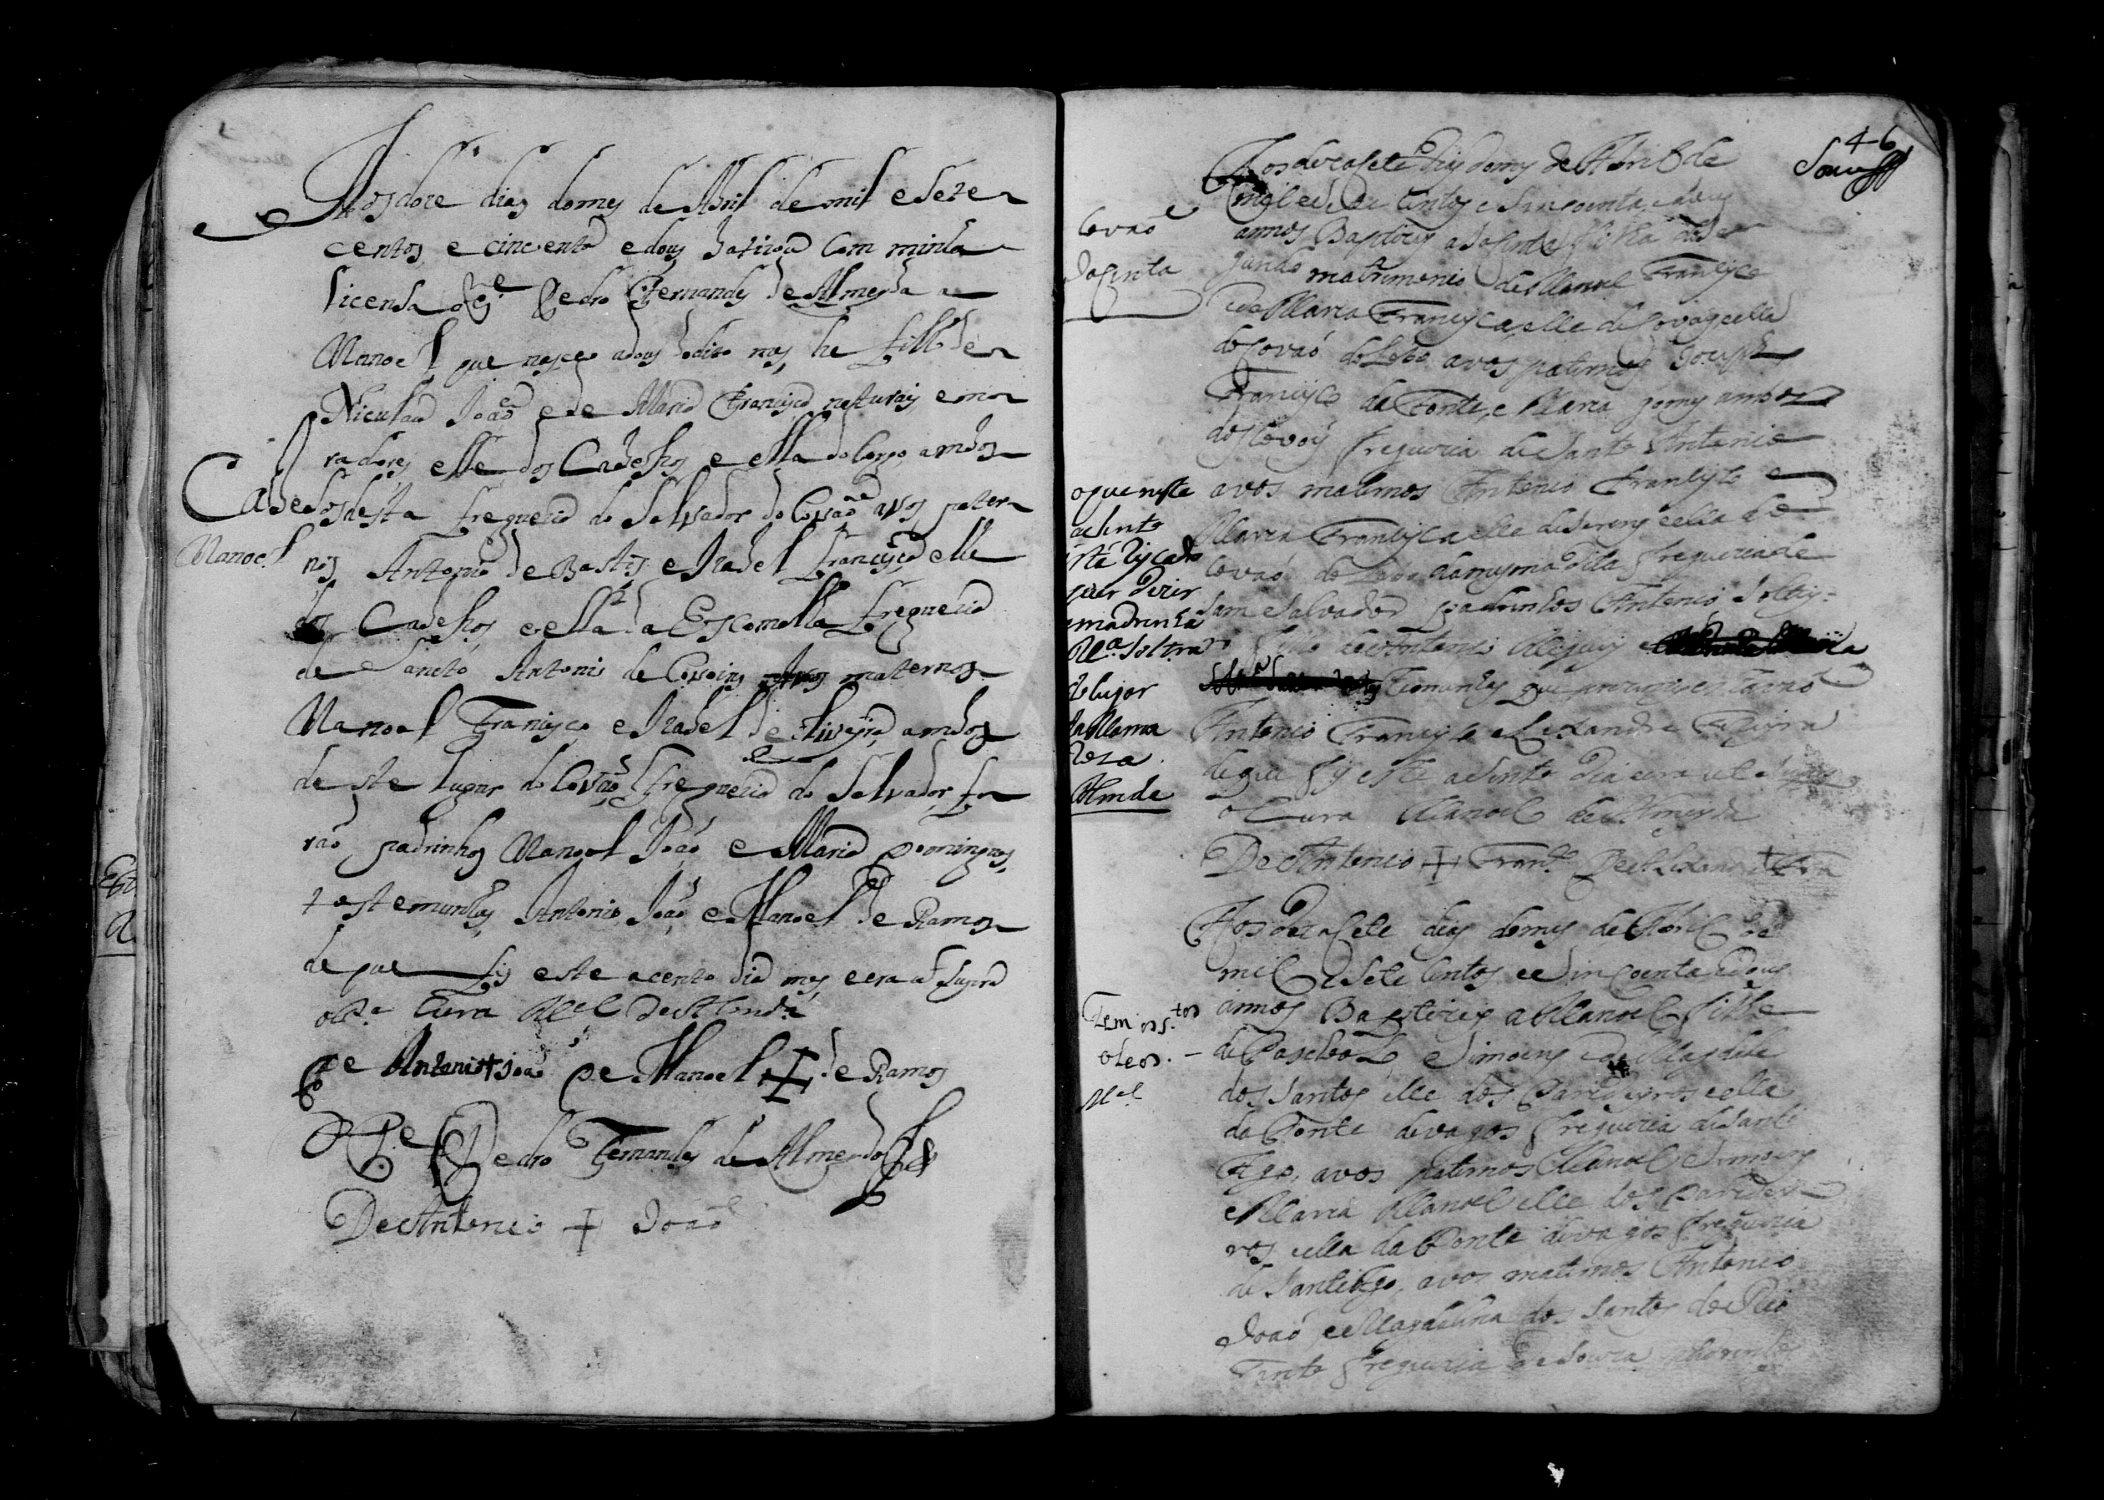 Aos doze dias do mes de Abril de mil e sete
centos e cincoenta e dous batizou com minha
licensa o P.e Pedro Fernandes de Almeyda a
Manoel que nasceo a dous do dito mes he filho de
Niculao João e de Maria Francisca naturais e mo
radores elle dos Cadesos e ella do Covão ambos
Cadesos desta freguezia do Salvador do Covão avos pater
Manoel
nos Antonio de Bastos e Izabel Francisca elle
dos Cadesos e ella da Escomalha freguezia
de Sancto Antonio de Covoins avos maternos
Manoel Francisco e Izabel de Oliveyra ambos
deste lugar do Covão freguezia do Salvador fo
rão padrinhos Manoel João e Maria Domingues
testemunhas Antonio João e Manoel de Ramos
de que fis este acento dia mes e era ut supra
o P.e Cura M.el de Almda
De Antonio + João De Manoel + de Ramos
O P.e Pedro Fernandes de Almeyda
De Antonio + João
46
Souza
Covão
Jasinta
Aos dezasete dias do mes de Abril de
mil e sete centos e sincoenta e dous
annos Baptizey a Jasinta filha do se
gundo matrimonio de Manoel Francisco
e de Maria Francisca elle de e ella
do Covão do Lobo avos paternos Joseph
Francisco da Fonte, e Maria Gomes ambos
dos Covois freguezia de Santo Antonio
avos maternos Antonio Francisco e
Maria Francisca elle de e ella de
Covão do Lobo da mesma dita freguezia de
Sam Salvador padrinhos Antonio Solteyro
filho de Antonio
testemunhas que prezentes estavão
Antonio Francisco e Lixandre
de que fis este asento dia era ut supra
o Cura Manoel de Almeyda
De Antonio + Fran.co De Lixandre +
o que neste
asento
está riscado
quer dizer
madrinha
M.a Soltra
do lugar
Almda
Tem os s.tos
oleos.
M.el
Aos dezasete dias do mes de Abril de
mil e sete centos e sincoenta e dous
annos Baptizey a Manoel filho
de Paschoal Simoens e de Magdalena
dos Santos elle dos e ella
da Ponte de Vagos freguezia de Santi
Ago, avos paternos Manoel Simoens
e Maria Manoel elle dos
ros e ella da Ponte de Vagos freguezia
de Santiago, avos maternos Antonio
João e Magdalena dos Santos do Rio
Tinto freguezia de Souza padrinhos